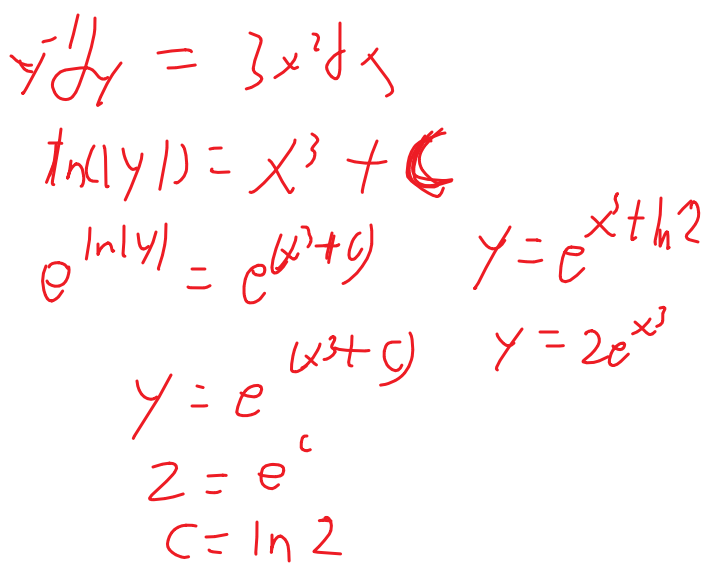 y⁻¹dy = 3x²dx
ln(|y|) = x³ + C
e^(ln|y|) = e^(x³+c)
y = e^(x³+c)
2 = e^c
c = ln 2
y = e^(x³+ln2)
y = 2e^(x³)